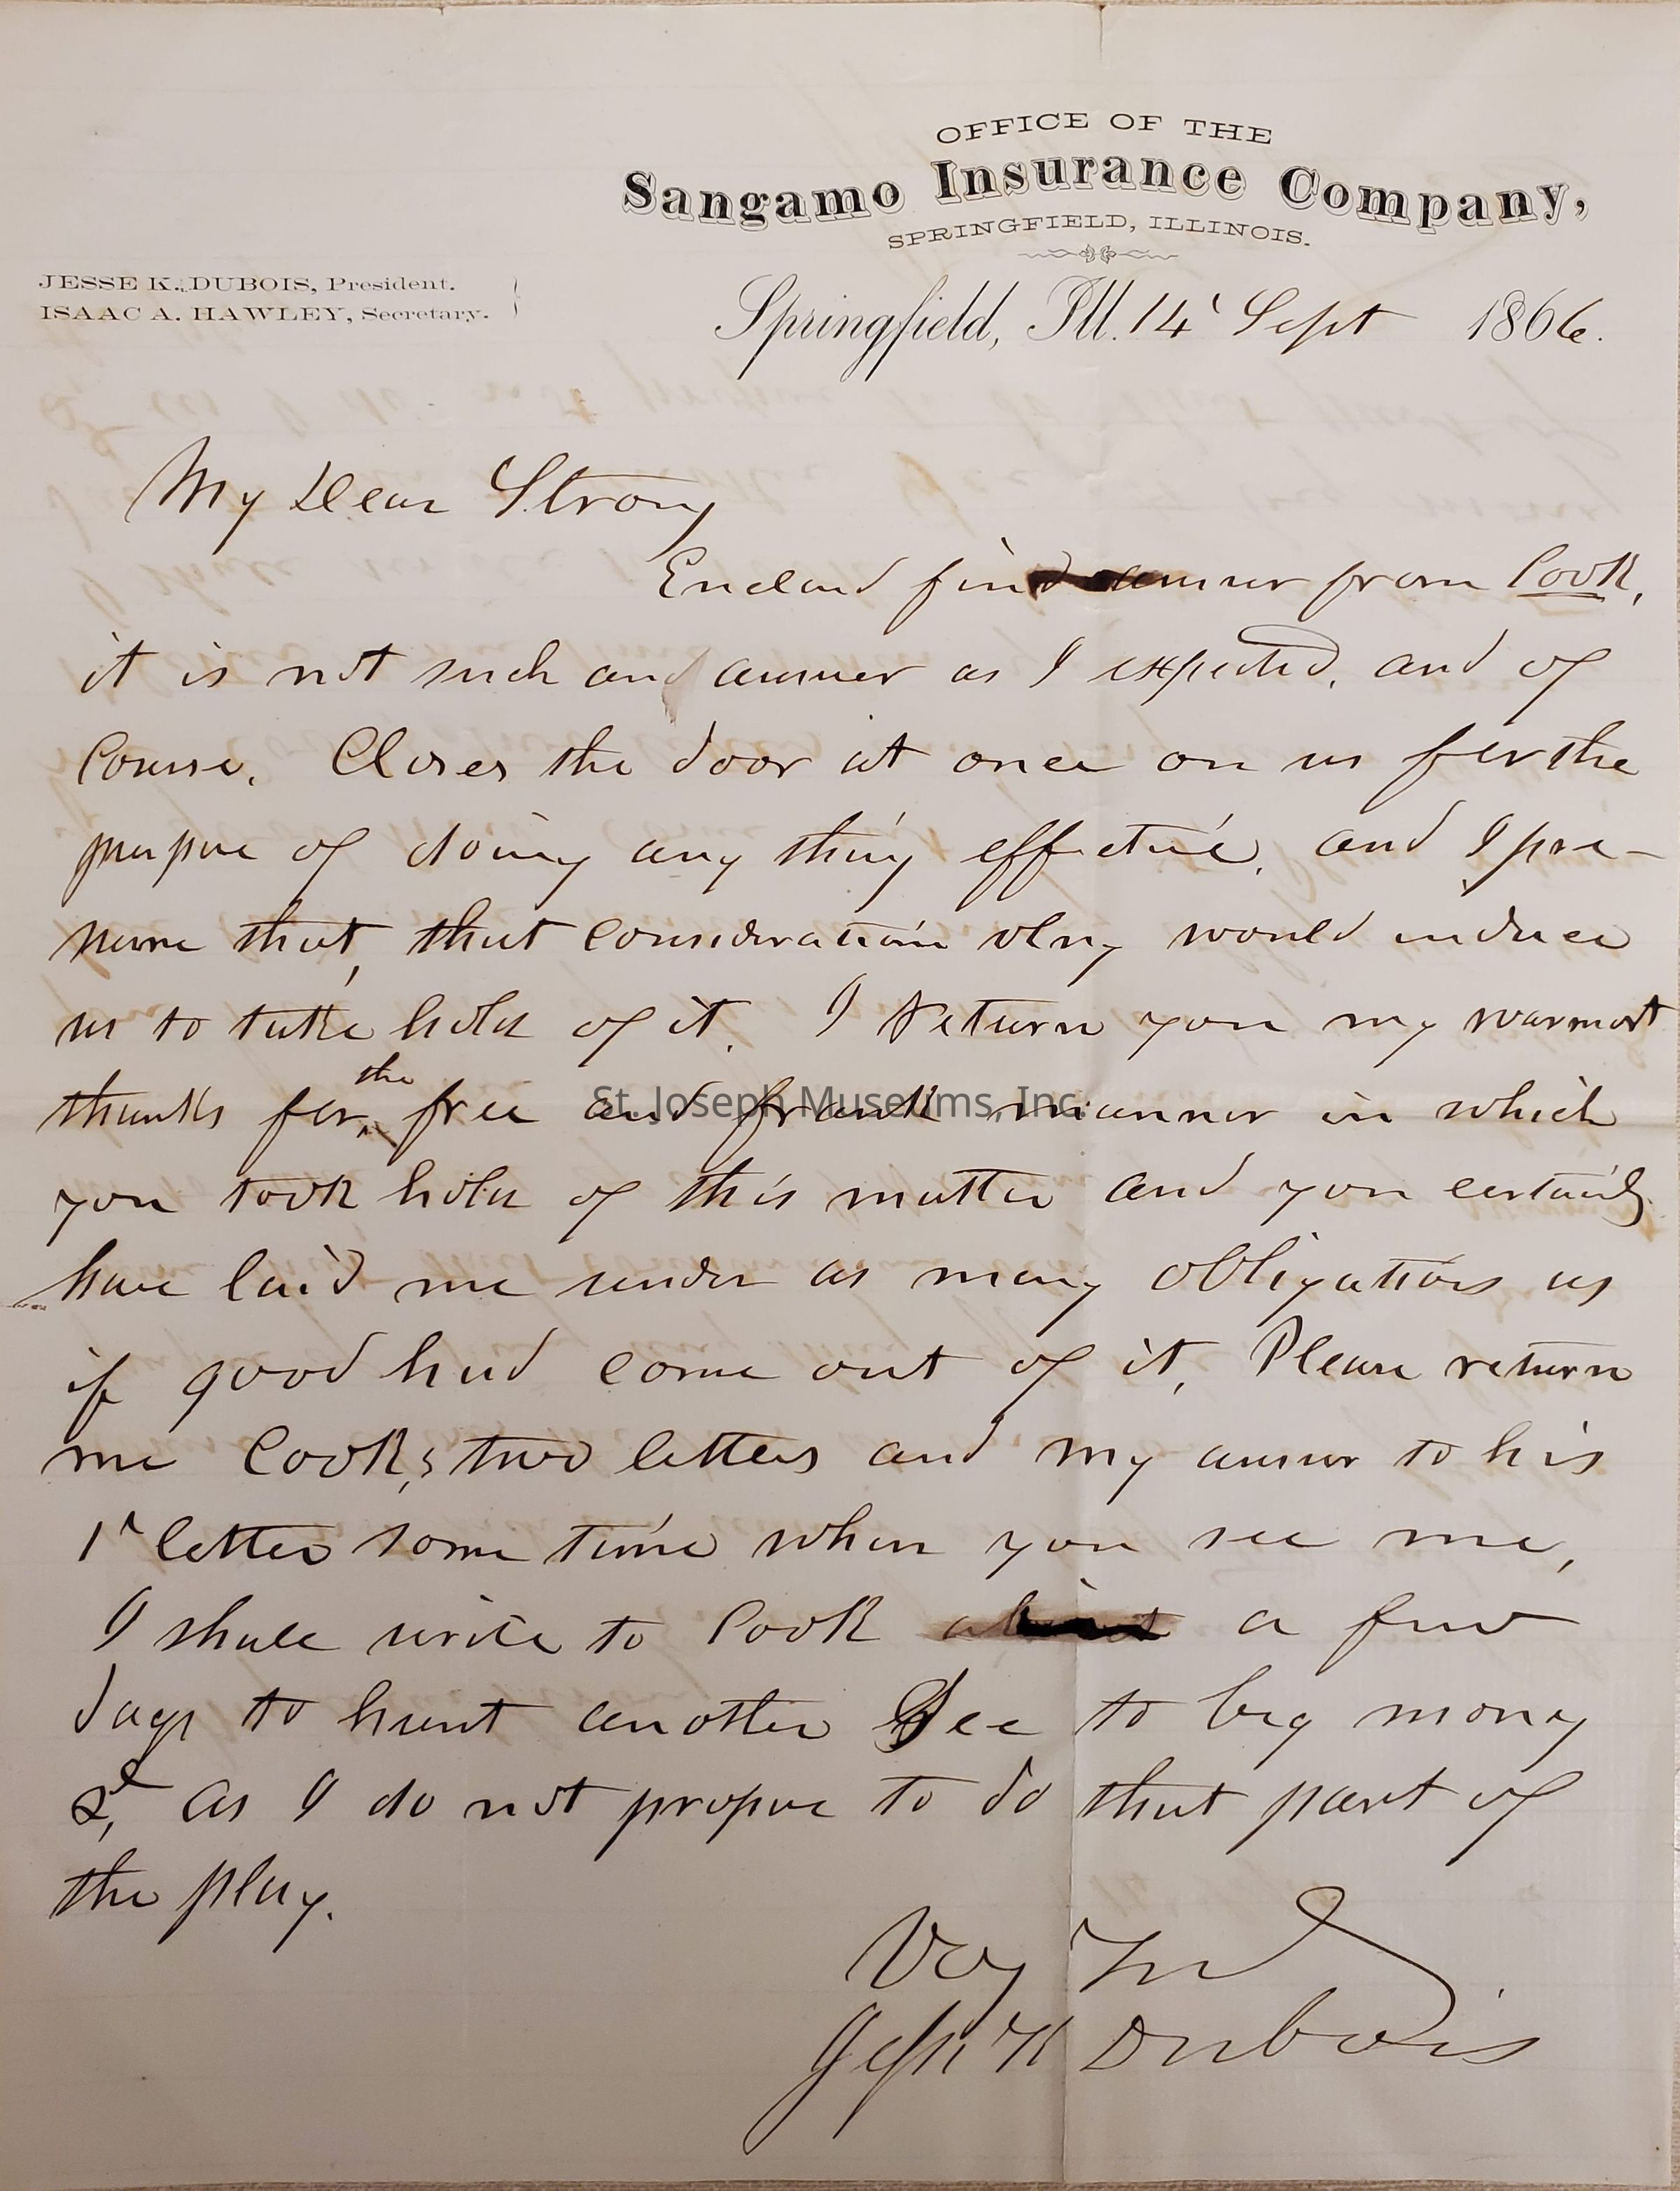 OFFICE OF THE
Sangamo Insurance Company,
SPRINGFIELD, ILLINOIS.
JESSE K. DUBOIS, President.
ISAAC A. HAWLEY, Secretary.
Springfield, Ill. 14' Sept 1866.
My Dear Strong
Enclosed find answer from Cook,
it is not such and answer as I expected, and of
Course, Closes the door at once on us for the
purpose of doing any thing effective, and I pre-
sume that, that consideration only would induce
us to take hold of it. I Return you my warmest
thanks for the free and frank manner in which
you took hold of this matter and you certainly
have laid me under as many obligations as
if good had come out of it, Please return
me Cook,s two letters and my answer to his
1st letter some time when you see me,
I shall write to Cook a few
days to hunt another to beg money
as I do not propose to do that part of
the play.
Very Truly
Jesse K Dubois
St. Joseph Museums, Inc.